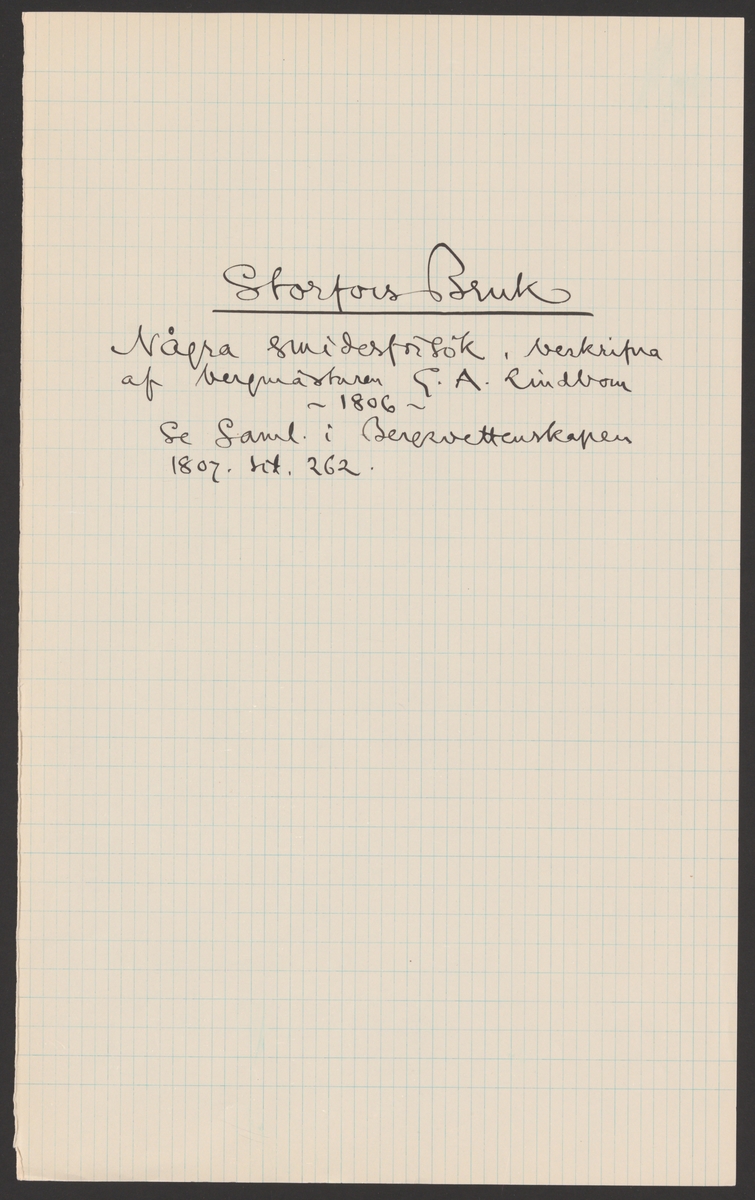 Storfors Bruk
Några smidesförsök, beskrifna
af bergmästaren G. A. Lindbom
~ 1806 ~
Se Saml. i Bergsvettenskapen
1807. sid. 262.